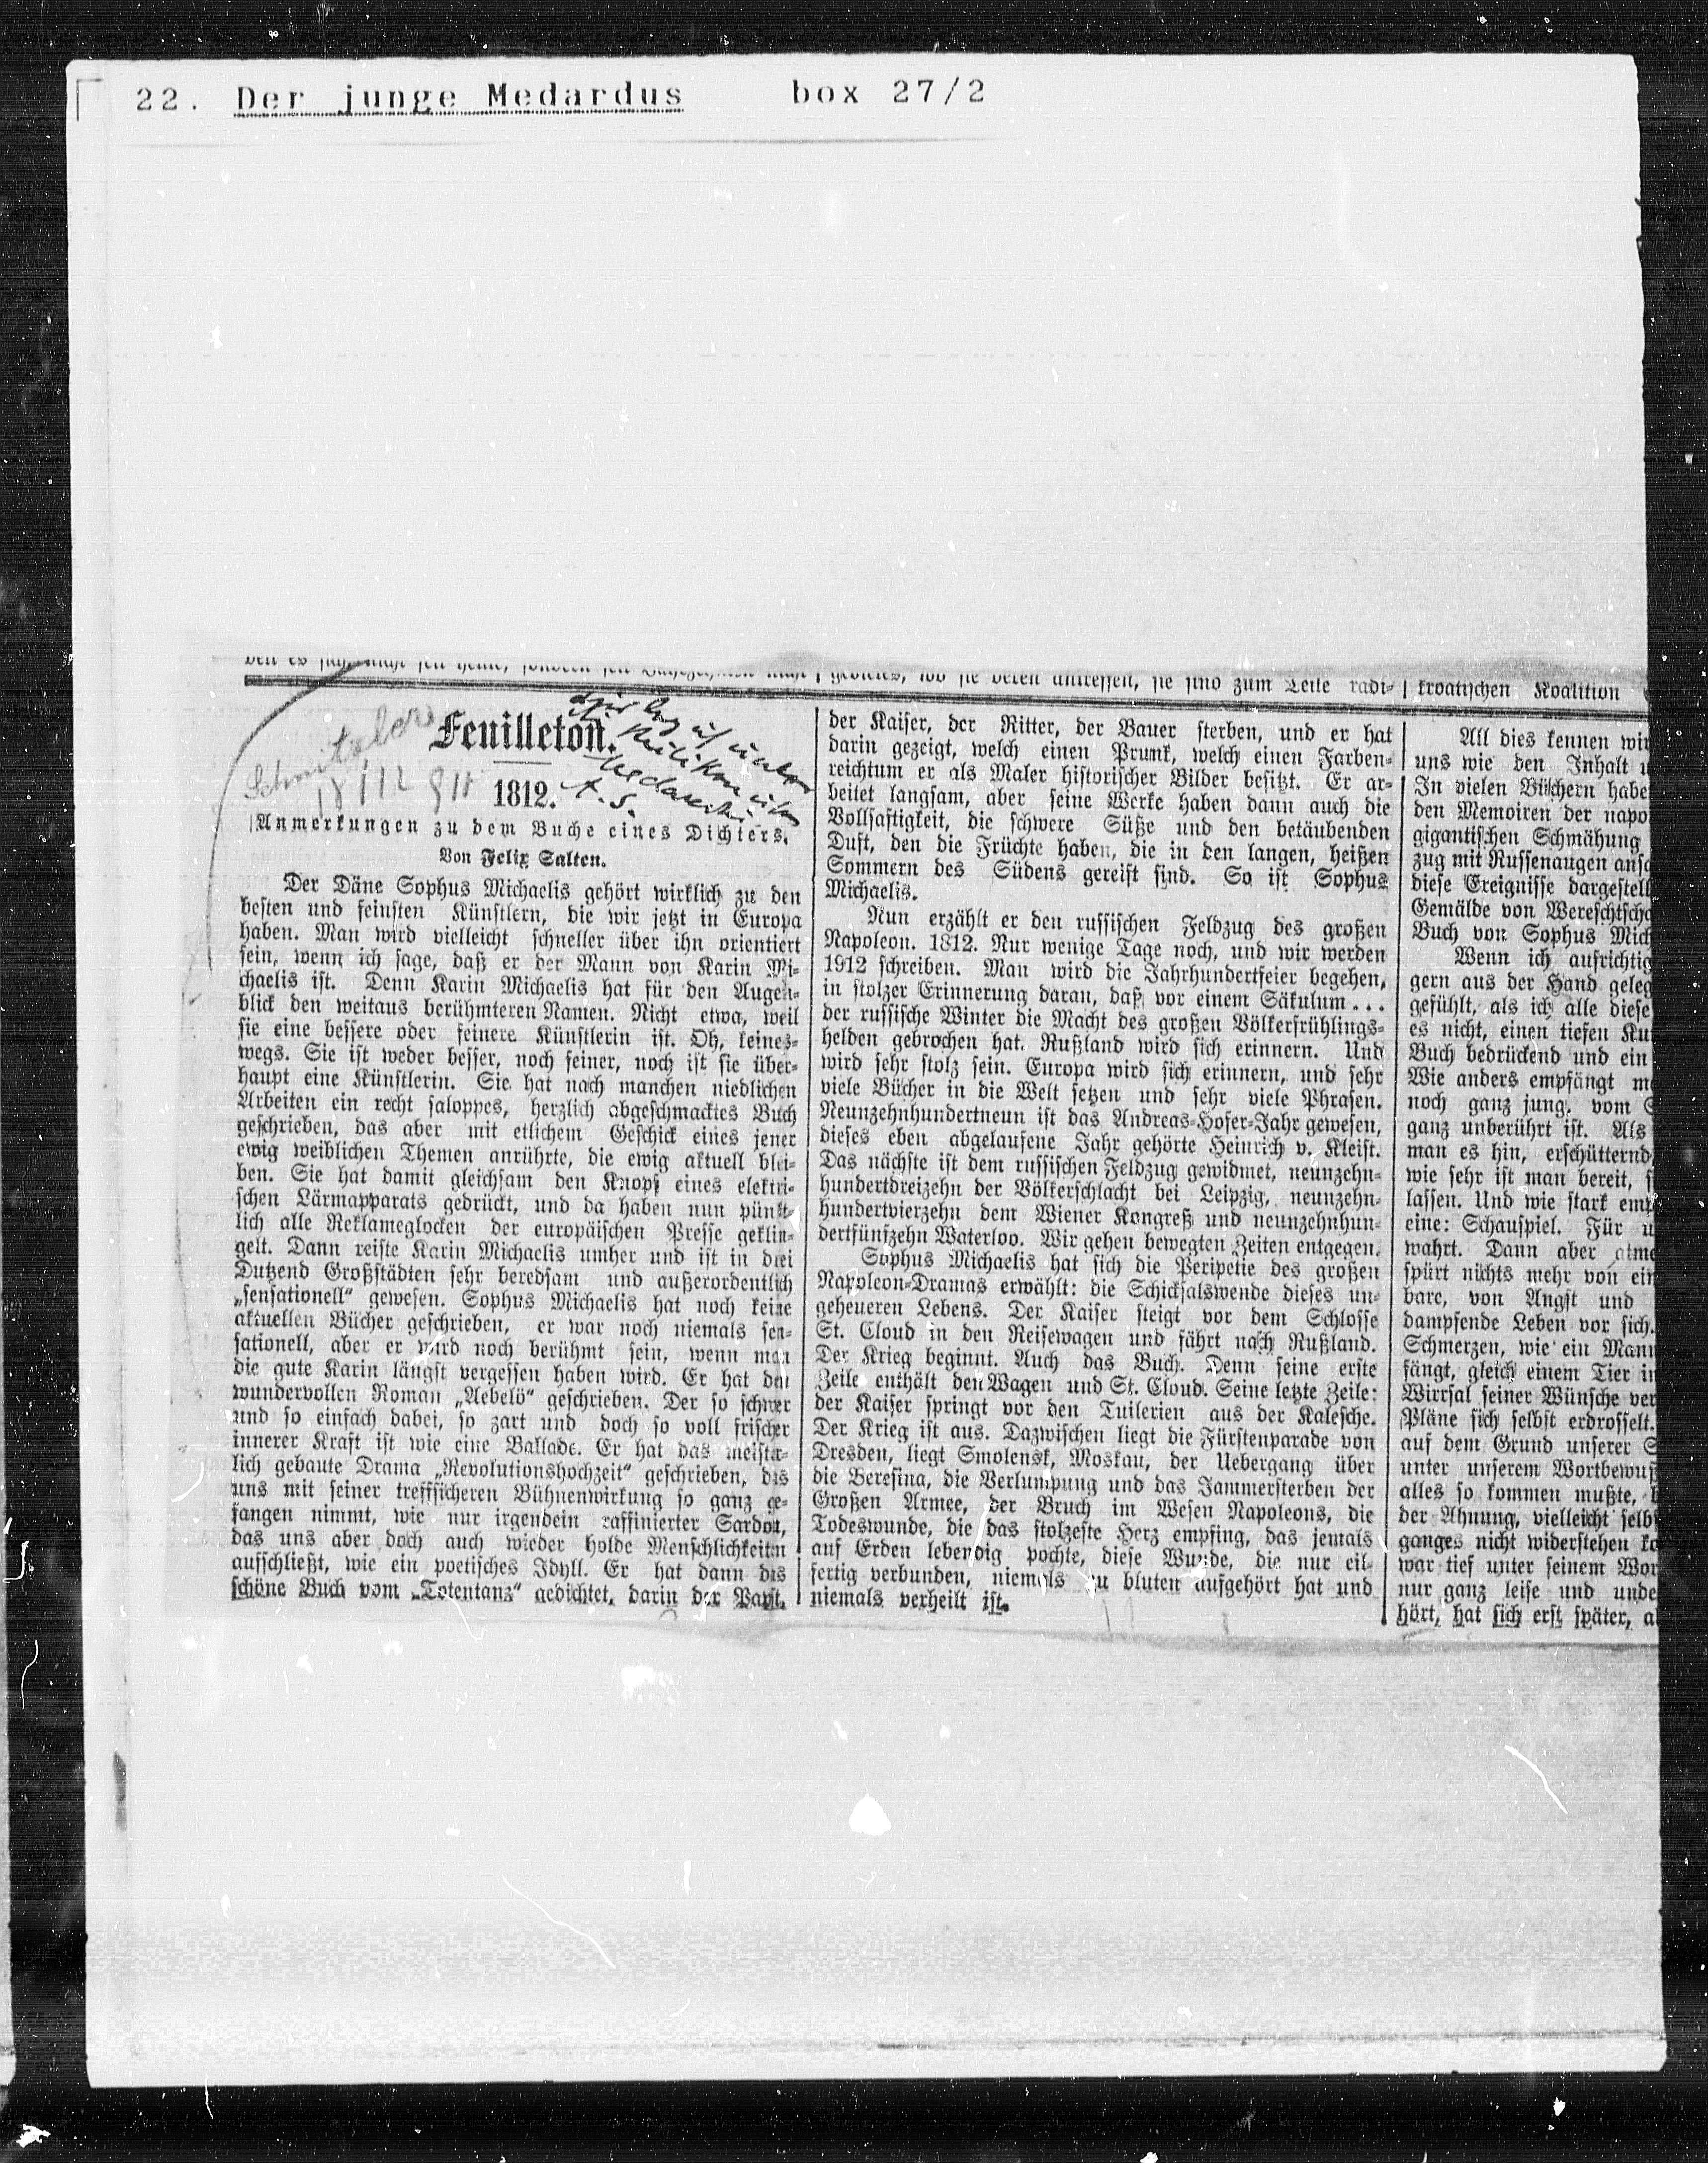 22. Der junge Medardus box 27/2
gebietes, wo sie deren antreffen, sie sind zum Teile radi-
kroatischen Koalition
Schnitzler
18/12 911
Feuilleton.
1812.
A. S.
Anmerkungen zu dem Buche eines Dichters.
Von Felix Salten.
Der Däne Sophus Michaelis gehört wirklich zu den
besten und feinsten Künstlern, die wir jetzt in Europa
haben. Man wird vielleicht schneller über ihn orientiert
sein, wenn ich sage, daß er der Mann von Karin Mi-
chaelis ist. Denn Karin Michaelis hat für den Augen-
blick den weitaus berühmteren Namen. Nicht etwa, weil
sie eine bessere oder feinere Künstlerin ist. Oh, keines-
wegs. Sie ist weder besser, noch feiner, noch ist sie über-
haupt eine Künstlerin. Sie hat nach manchen niedlichen
Arbeiten ein recht saloppes, herzlich abgeschmacktes Buch
geschrieben, das aber mit etlichem Geschick eines jener
ewig weiblichen Themen anrührte, die ewig aktuell blei-
ben. Sie hat damit gleichsam den Knopf eines elektri-
schen Lärmapparats gedrückt, und da haben nun pünkt-
lich alle Reklameglocken der europäischen Presse geklin-
gelt. Dann reiste Karin Michaelis umher und ist in drei
Dutzend Großstädten sehr beredsam und außerordentlich
„sensationell“ gewesen. Sophus Michaelis hat noch keine
aktuellen Bücher geschrieben, er war noch niemals sen-
sationell, aber er wird noch berühmt sein, wenn man
die gute Karin längst vergessen haben wird. Er hat den
wundervollen Roman „Aebelö“ geschrieben. Der so schwer
und so einfach dabei, so zart und doch so voll frischer
innerer Kraft ist wie eine Ballade. Er hat das meister-
lich gebaute Drama „Revolutionshochzeit“ geschrieben, das
uns mit seiner treffsicheren Bühnenwirkung so ganz ge-
fangen nimmt, wie nur irgendein raffinierter Sardou,
das uns aber doch auch wieder holde Menschlichkeiten
aufschließt, wie ein poetisches Idyll. Er hat dann das
schöne Buch vom „Totentanz“ gedichtet, darin der Papst,
der Kaiser, der Ritter, der Bauer sterben, und er hat
darin gezeigt, welch einen Prunk, welch einen Farben-
reichtum er als Maler historischer Bilder besitzt. Er ar-
beitet langsam, aber seine Werke haben dann auch die
Vollsaftigkeit, die schwere Süße und den betäubenden
Duft, den die Früchte haben, die in den langen, heißen
Sommern des Südens gereift sind. So ist Sophus
Michaelis.
Nun erzählt er den russischen Feldzug des großen
Napoleon. 1812. Nur wenige Tage noch, und wir werden
1912 schreiben. Man wird die Jahrhundertfeier begehen,
in stolzer Erinnerung daran, daß vor einem Säkulum...
der russische Winter die Macht des großen Völkerfrühlings-
helden gebrochen hat. Rußland wird sich erinnern. Und
wird sehr stolz sein. Europa wird sich erinnern, und sehr
viele Bücher in die Welt setzen und sehr viele Phrasen.
Neunzehnhundertneun ist das Andreas-Hofer-Jahr gewesen,
dieses eben abgelaufene Jahr gehörte Heinrich v. Kleist.
Das nächste ist dem russischen Feldzug gewidmet, neunzehn-
hundertdreizehn der Völkerschlacht bei Leipzig, neunzehn-
hundertvierzehn dem Wiener Kongreß und neunzehnhun-
dertfünfzehn Waterloo. Wir gehen bewegten Zeiten entgegen.
Sophus Michaelis hat sich die Peripetie des großen
Napoleon-Dramas erwählt: die Schicksalswende dieses un-
geheueren Lebens. Der Kaiser steigt vor dem Schlosse
St. Cloud in den Reisewagen und fährt nach Rußland.
Der Krieg beginnt. Auch das Buch. Denn seine erste
Zeile enthält den Wagen und St. Cloud. Seine letzte Zeile:
der Kaiser springt vor den Tuilerien aus der Kalesche.
Der Krieg ist aus. Dazwischen liegt die Fürstenparade von
Dresden, liegt Smolensk, Moskau, der Uebergang über
die Beresina, die Verlumpung und das Jammersterben der
Großen Armee, der Bruch im Wesen Napoleons, die
Todeswunde, die das stolzeste Herz empfing, das jemals
auf Erden lebendig pochte, diese Wunde, die nur eil-
fertig verbunden, niemals zu bluten aufgehört hat und
niemals verheilt ist.
All dies kennen wir
uns wie den Inhalt u
In vielen Büchern habe
den Memoiren der napo
gigantischen Schmähung
zug mit Russenaugen ansc
diese Ereignisse dargestell
Gemälde von Wereschtscha
Buch von Sophus Mich
Wenn ich aufrichtig
gern aus der Hand geleg
gefühlt, als ich alle diese
es nicht, einen tiefen Ku
Buch bedrückend und ein
Wie anders empfängt me
noch ganz jung, vom S
ganz unberührt ist. Als
man es hin, erschütternd
wie sehr ist man bereit, s
lassen. Und wie stark emp
eine: Schauspiel. Für u
wahrt. Dann aber atme
spürt nichts mehr von ein
bare, von Angst und
dampfende Leben vor sich.
Schmerzen, wie ein Mann
fängt, gleich einem Tier in
Wirrsal seiner Wünsche ver
Pläne sich selbst erdrosselt.
auf dem Grund unserer S
unter unserem Wortbewuß
alles so kommen mußte,
der Ahnung, vielleicht selb
ganges nicht widerstehen ko
war tief unter seinem Wor
nur ganz leise und unde
hört, hat sich erst später, a